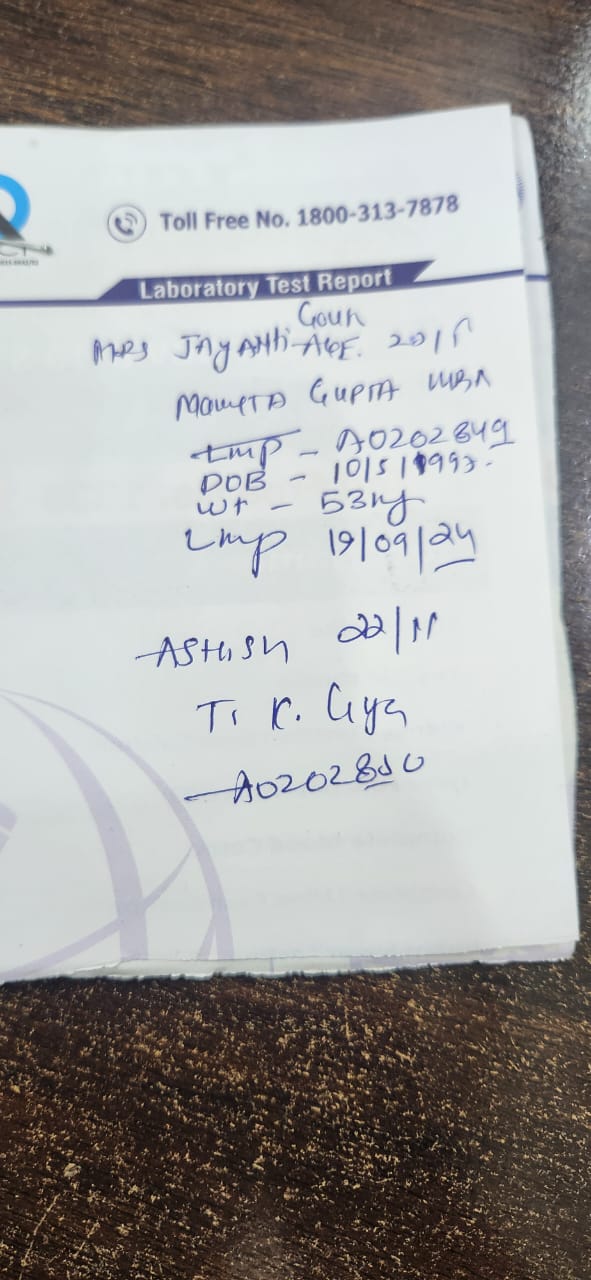 Toll Free No. 1800-313-7878
Laboratory Test Report
Goun
MRS JAYANTI AGE. 20/F
MAMTA GUPTA MBA
A0202849
DOB - 10/5/1993.
Wt - 53kg
Lmp 19/09/24
ASHISH 22/M
T. K.
A0202850